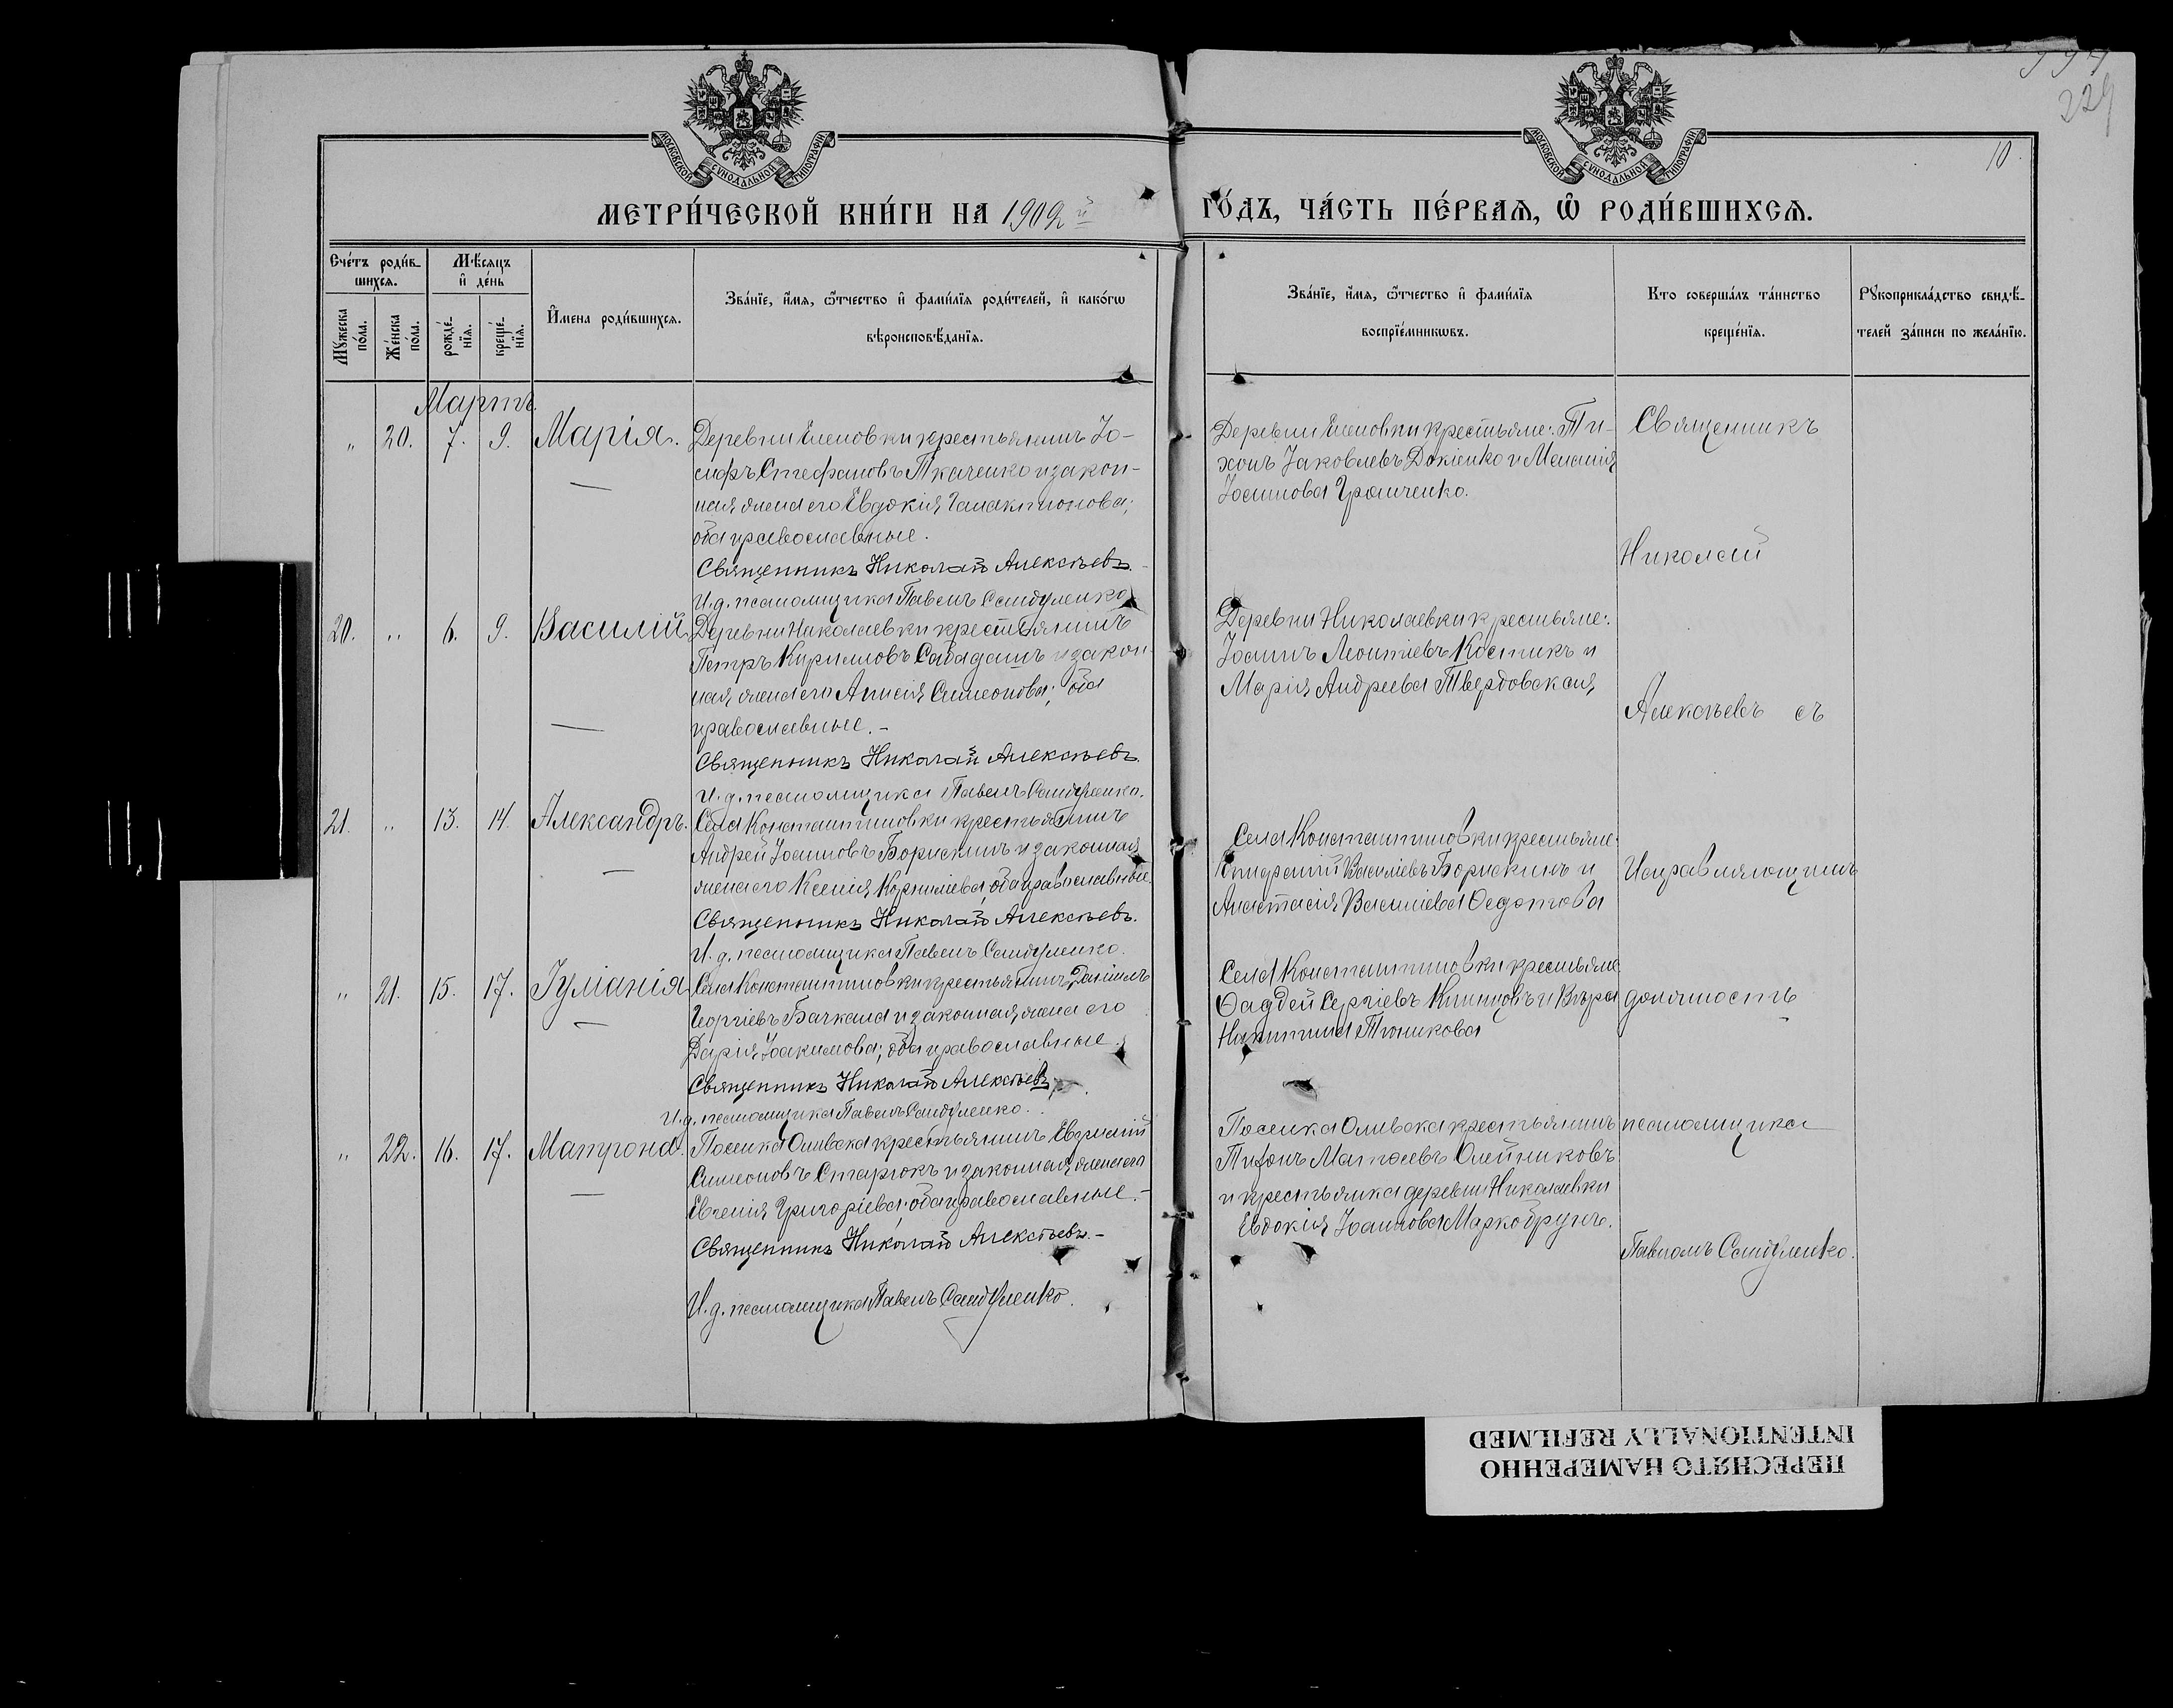 229
10.
МОСКОВСКОЙ СѴНОДАЛЬНОЙ ТИПОГРАФІИ
МОСКОВСКОЙ СѴНОДАЛЬНОЙ ТИПОГРАФІИ
МЕТРИ́ЧЕСКОЙ КНИ́ГИ НА 1909 й
ГО́ДЪ, ЧА́СТЬ ПЕ́РВАѦ, Ѡ҆ РОДИ́ВШИХСѦ.
Сче́тъ роди́в-
шихсѧ.
Мꙋжеска по́ла.
Же́нска по́ла.
Мѣ́сѧцъ
и҆ де́нь
рожде́-
нїѧ.
креще́-
нїѧ.
И҆мена роди́вшихсѧ.
Зва́нїе, и҆́мѧ, ѻ҆́тчество и҆ фами́лїѧ роди́телей, и҆ како́гѡ
вѣроисповѣ́данїѧ.
Зва́нїе, и҆́мѧ, ѻ҆́тчество и҆ фами́лїѧ
воспрїе́мникѡвъ.
Кто соверша́лъ та́инство
креще́нїѧ.
Рꙋкоприкла́дство свидѣ́-
телей за́писи по жела́нїю.
Мартъ.
" 20. 7. 9. Марія.
Деревни Еленовки крестьянинъ Іо-
сифъ Стефановъ Ткаченко и закон-
ная жена его Евдокія Галактионова;
оба православные.
Священникъ Николай Алексѣевъ.
И. д. псаломщика Павелъ Сандуленко
Деревни Еленовки крестьяне: Ти-
хонъ Іаковлевъ и Меланія
Іоаннова
20. " 6. 9. Василій.
Деревни Николаевки крестьянинъ
Петръ Кирилловъ Сабадашъ и закон-
ная жена его Анисія Симеонова; оба
православные.-
Священникъ Николай Алексѣевъ.
И. д. псаломщика Павелъ Сандуленко.
Деревни Николаевки крестьяне:
Іоаннъ Леонтіевъ Костикъ и
Марія Андреева Твердовская
21. " 13. 14. Александръ.
Села Константиновки крестьянинъ
Андрей Іоанновъ Борискинъ и законная
жена его Ксенія Корниліева, оба православные.
Священникъ Николай Алексѣевъ.
И. д. псаломщика Павелъ Сандуленко.
Села Константиновки крестьяне:
Василіевъ Борискинъ и
Анастасія Василіева Ѳедотова
" 21. 15. 17. Іуліанія
Села Константиновки крестьянинъ Даніилъ
Георгіевъ Бачкала и законная жена его
Дарія Іоакимова; оба православные.
Священникъ Николай Алексѣевъ.
И. д. псаломщика Павелъ Сандуленко.
Села Константиновки крестьяне:
Ѳаддей Сергіевъ и Вѣра
Никитина
" 22. 16. 17. Матрона.
Поселка Ольвска крестьянинъ Евфимій
Симеоновъ Старюкъ и законная жена его
Евгенія Григоріева; оба православные.-
Священникъ Николай Алексѣевъ.-
И. д. псаломщика Павелъ Сандуленко.
Поселка Ольвска крестьянинъ
Матѳеевъ Олейниковъ
и крестьянка деревни Николаевки
Евдокія Іоаннова Маркобрунъ.
Священникъ
Николай
Алексѣевъ съ
Исправляющимъ
должность
псаломщика
Павломъ Сандуленко.
ПЕРЕСНЯТО НАМЕРЕННО
INTENTIONALLY REFILMED